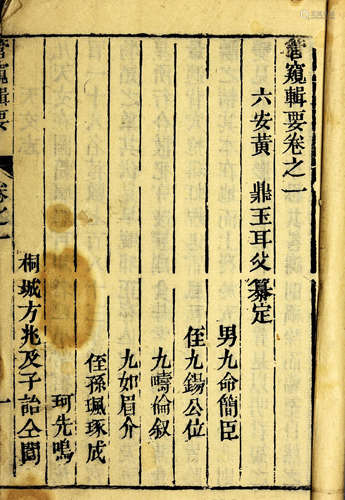 管窺輯要卷之一
六安黃　鼎玉耳父纂定
男九命簡臣
侄九錫公位
九疇倫叙
九如眉介
侄孫珮琢成
珂先鳴
桐城方兆及子詒仝閱
管窺輯要
卷之一
一